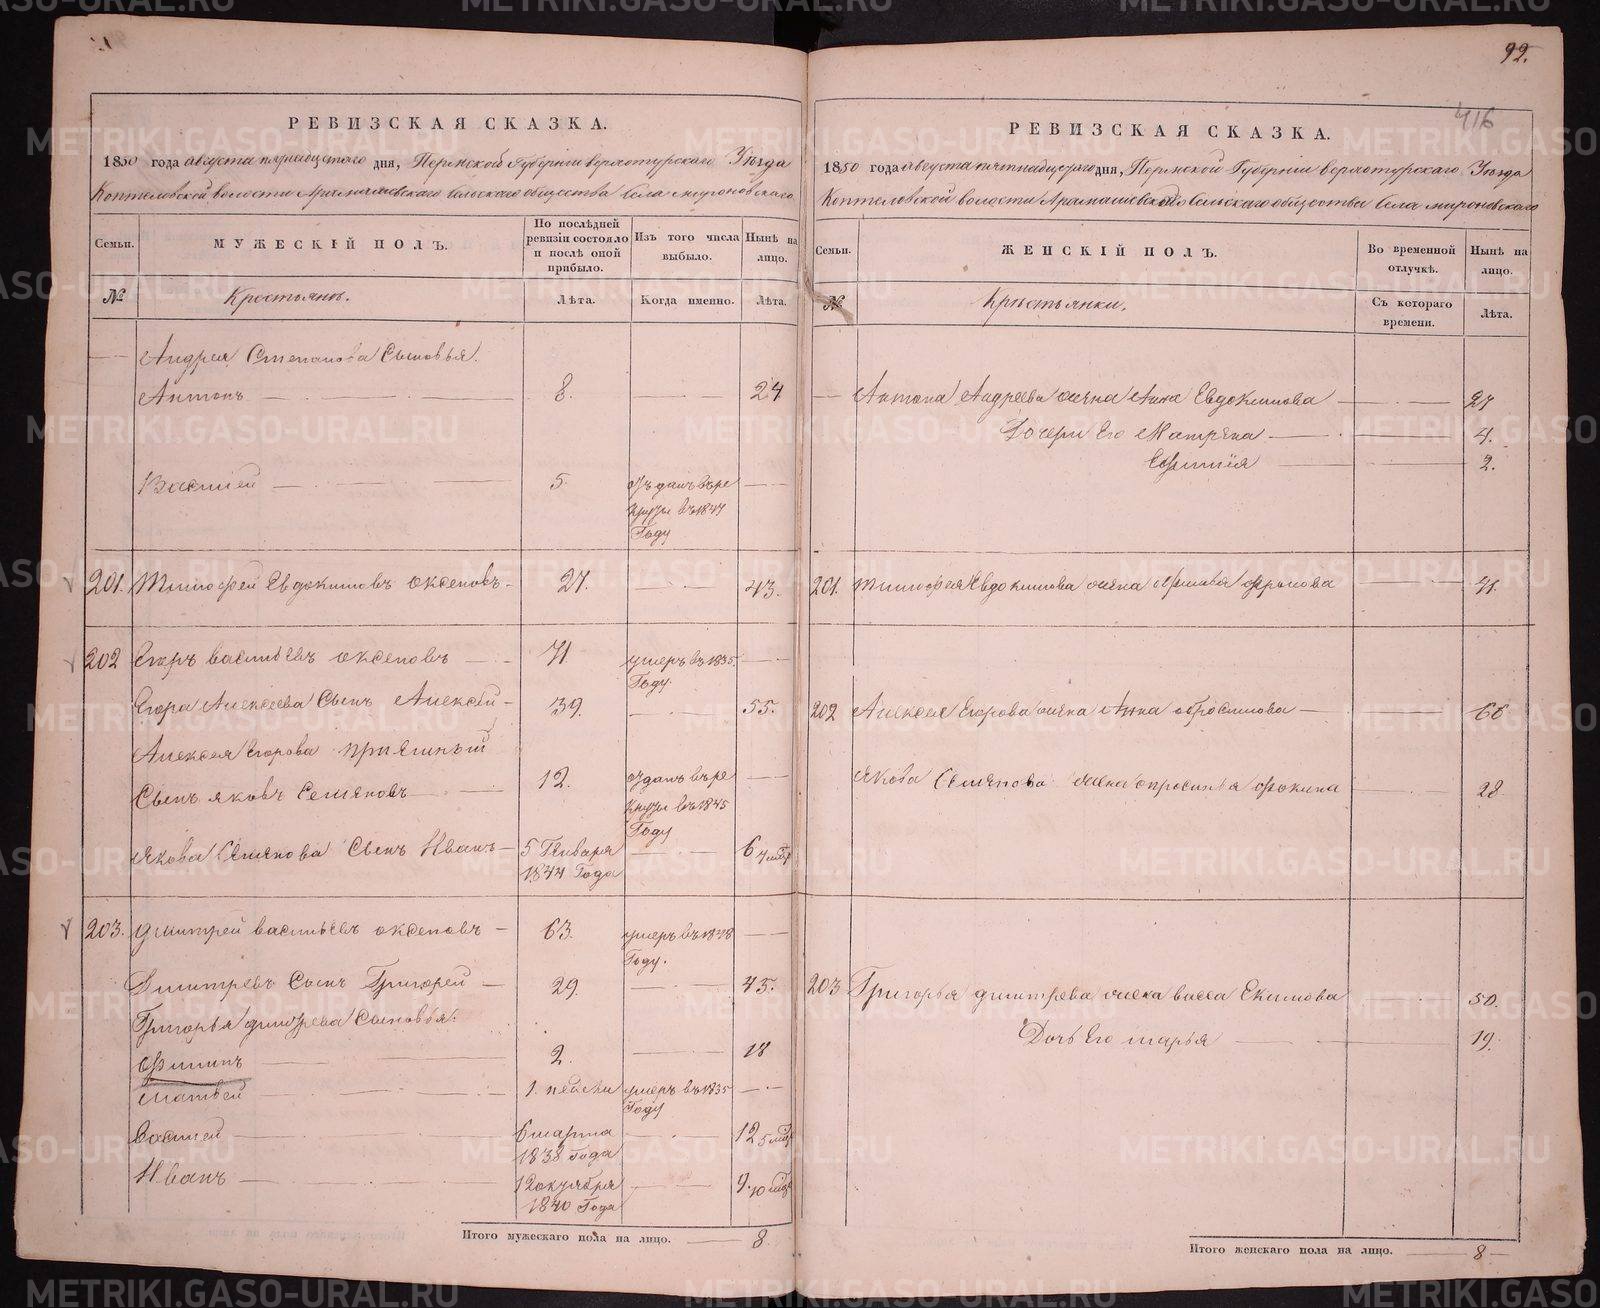 92.
416
РЕВИЗСКАЯ СКАЗКА.
1850 года августа пятнадцатого дня, Пермской Губернiи верхотурского Уѣзда
Коптеловской волости Арамашевского сельского общества села мироновского
Семьи. МУЖЕСКIЙ ПОЛЪ. По послѣдней ревизiи состояло и послѣ оной прибыло. Изъ того числа выбыло. Нынѣ на лицо.
№ Крестьянъ. Лѣта. Когда именно. Лѣта.
Андрея Степанова Сыновья.
Антонъ 8. 24
Василей 5. Отданъ въ ре
круты въ 1847
Году
201. Тимофей Евдокимовъ Оксеновъ 27. 43.
202 Егоръ васильевъ оксеновъ 71 умеръ въ 1835.
Году.
Егора Алексеева Сынъ Алексей 39. 55.
Алексея Егорова приемный
Сынъ яковъ Семеновъ 12. Отданъ въ ре
круты въ 1845
Году
Якова Семенова Сынъ Иванъ 5 Генваря 6
1844 Года
203. дмитрей васильевъ оксеновъ 63. умеръ въ 1848
Году.
Дмитревъ Сынъ Григорей 29. 45.
Григорья дмитрева Сыновья.
Филипъ 2. 18
матвей 1. недели умеръ въ 1835
Году
василей 6 марта 12 5 мѣс
1838 года
Иванъ 12 октября 9. 10 мѣс
1840 Года
Итого мужескаго пола на лицо. 8.
РЕВИЗСКАЯ СКАЗКА.
1850 года августа пятнадцатого дня, Пермской Губернiи верхотурского Уѣзда
Коптеловской волости Арамашевского сельского общества села мироновского
Семьи. ЖЕНСКIЙ ПОЛЪ. Во временной отлучкѣ. Нынѣ на лицо.
№ Крестьянки. Съ котораго времени. Лѣта.
Антона Андреева жена Анна Евдокимова 27
Дочери Его Матрена 4.
Ефимiя 2.
201. Тимофея Евдокимова жена 41.
202 Алексея Егорова жена Анна 66
Якова Семенова жена Фокина 28
203 Григорья дмитрева жена васса Екимова 50.
Дочь Его марья 19.
Итого женскаго пола на лицо. 8
METRIKI.GASO-URAL.RU